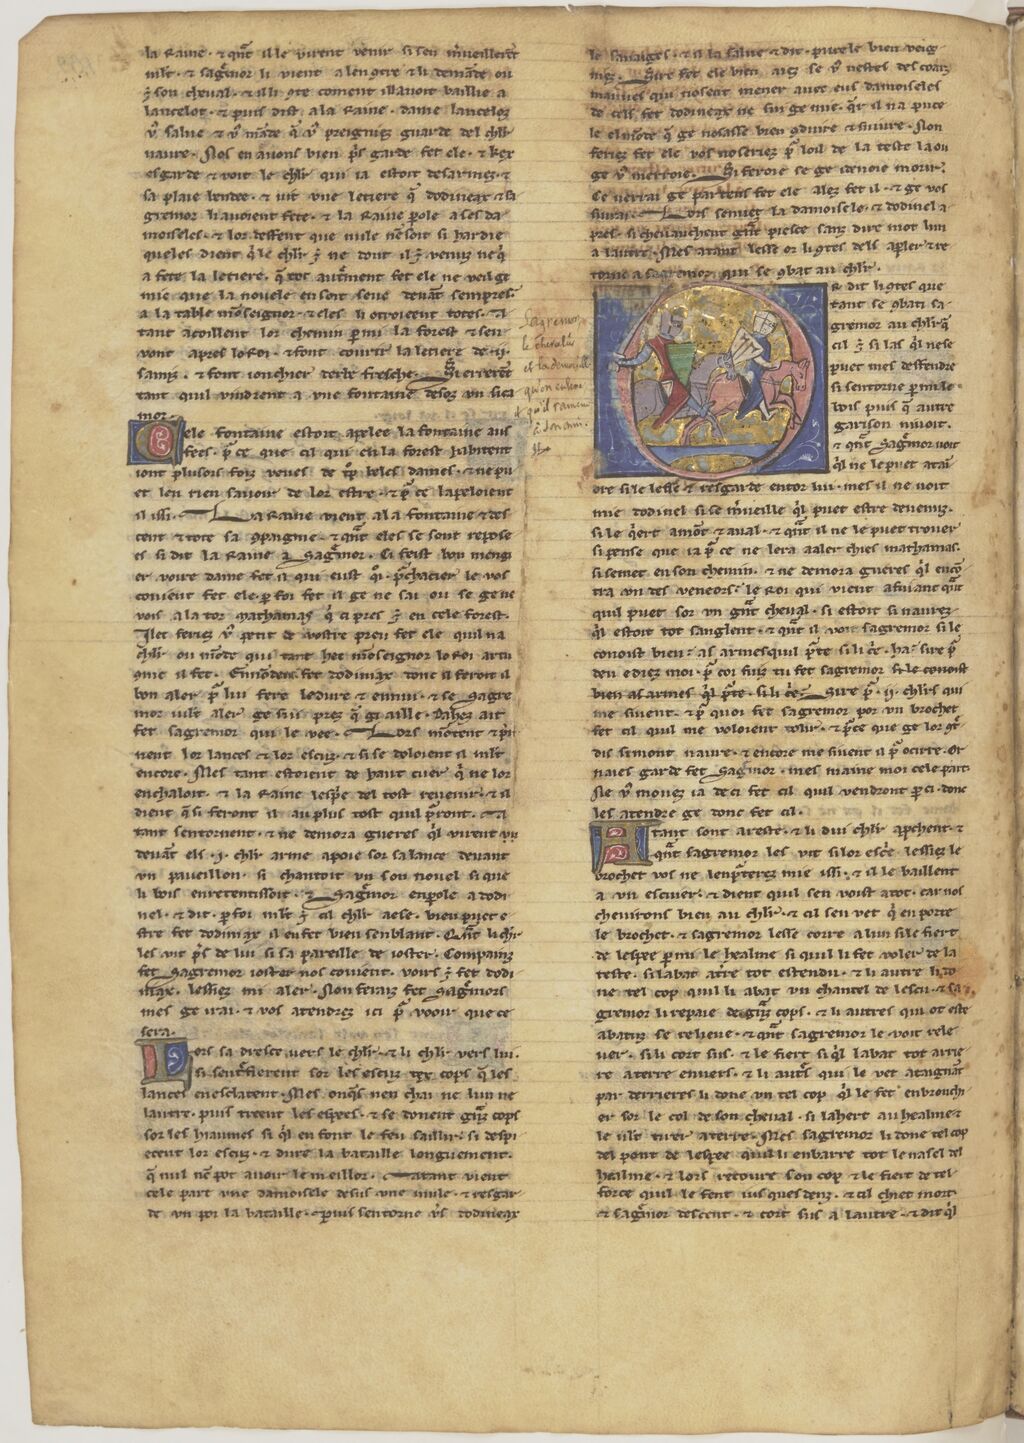 la Raine · & qnt il le virent venir si sen merveillerent
mlt · & sagremor li vient a lencontre & li demande ou
son cheval · & il li conte coment il lavoit baillie a
lancelot · & puis dist a la Raine · dame lanceloz
vos salue & vos mande que vos preigniez guarde del chlr
navre · Nos en avons bien pris garde fet ele · & kex
esgarde & voit le chlr qui ia estoit desarmez · &
sa plaie bendee · & vit une letiere que dodineax & sa
gremor li avoient fete · & la Raine parole a ses da
moiseles · & lor deffent que nule ne soit si hardie
queles dient que le chlr ne dont il venir ne
a fete la letiere · autrement fet ele ne veil ge
mie que la novele en soit seue devant
a la table monseignor · & eles li otroient totes · A
tant acoillent lor chemin parmi la forest & sen
vont apres lo Roi · & font courir la letiere de · ii ·
· & font ionchier derbe fresche · Si errerent
tant quil vindrent a une fontaine desoz un sica
mor ·
Cele fontaine estoit apelee la fontaine aus
fees · por ce que cil qui en la forest habitent
iont plusors foiz veues de trop beles dames · & ne pu
et len rien savoir de lor estre · & por ce lapeloient
il issi · La Raine vient a la fontaine & des
cent & tote sa conpagnie · & qnt eles se sont repose
es si dit la Raine a Sagremor · Ci feist bon mengi
er voire dame fet il qui eust quoi · porchacier le vos
covient fet ele · par foi fet il ge ne sai ou se ge ne
vois a la tor mathamas qui ci pres en cele forest ·
Ilec feriez vos petit de vostre preu fet ele quil na
chlr ou monde qui tant hee monseignor lo Roi artu
com il fet · fet dodineax donc il feroit il
bon aler por lui fere ledure & ennui · & se Sagre
mor vult aler ge sui prez que gi aille · Dahez ait
fet sagremor qui le vee · Lors montent & pre
nent lor lances & lor escuz · & si se doloient il mlt
encore · Mes tant estoient de haut cuer quil ne lor
enchaloit · & la Raine les prie del tost revenir · & il
dient que si feront il au plus tost quil porront · A
tant sentornent · & ne demora gueres quil virent
devant els · i · chlr arme apoie sor sa lance devant
un paveillon · si chantoit un son novel si que
li bois en retentissoit · & Sagremor en parole a dodi
nel · & dit · par foi mlt est cil chlr aese · bien puet e
stre fet dodineax il en fet bien senblant · Quant li chlr
les vit pres de lui si sa pareille de ioster · Compainz
fet Sagremor ioster nos covient · voirs est fet dodi
niax · lessiez mi aler · Non feraiz fet Sagremors
mes ge irai · & vos atendrez ici por veoir que ce
sera ·
Lors sa dresce vers le chlr · & li chlr vers lui ·
si sentrefierent sor les escuz tex cops que les
lances en esclatent · Mes onques nen chai ne lun ne
lautre · puis traient les espees · & se donent granz cops
sor les hiaumes si quil en font le feu saillir · si despi
ecent lor escuz · & dure la bataille longuement ·
que nul ne pot avoir le meillor · Atant vient
cele part une damoisele desus une mule · & resgar
de un por la bataille · puis sentorne vers dodineax
le sauvages · & il la salue & dit · pucele bien veig
niez · Sire fet ele bien aiez se vos nestes des coarz
mauves qui nosent mener avec eus damoiseles
de cels fet dodineax ne sui ge mie · quar il na puce
le el monde que ge nosasse bien conduire & suivre · Non
feriez fet ele vos noseriez por loil de la teste la ou
ge vos merroie · Si feroie se ge devoie morir ·
Ce verrai ge par tens fet ele alez fet il · & ge vos
sivrai · Lors senvet la damoisele · & dodinel a
pres · si chevauchent grant piesce sanz dire mot lun
a lautre · Mes atant lesse or li contes dels a parler & re
torne a sagremor qui se conbat au chlr ·
Or dit li contes que
tant se conbati sa
gremor au chlr que
cil est si las quil ne se
puet mes deffendre
si sentorne parmi le
bois puis que autre
garison ni voit ·
& qnt Sagremor voit
quil ne le puet atai
dre si le lesse & resgarde entor lui · mes il ne voit
mie dodinel si se merveille quil puet estre devenuz ·
si le quiert amont & aval · & qnt il ne le puet trover
si pense que ia por ce ne lera a aler chies mathamas ·
si se met en son chemin · & ne demora gueres quil encon
tra un des veneors le Roi qui vient afuiant qnt
quil puet sor un grant cheval · si estoit si navrez
quil estoit tot sanglent · & qnt il voit sagremor si le
conoist bien as armes quil porte si li crie · ha · sire por
deu ediez moi · por cor fuiz tu fet sagremor si le conoist
bien as armes quil porte · si li crie · Sire por · ii · chlrs qui
me sivent · & por quoi fet sagremor por un brochet
fet cil quil me voloient tolir · & por ce que ge lor contre
dis si mont navre · & encore me sivent il por ocirre · Or
naies garde fet Sagremor · mes maine moi cele part ·
Ne vos movez ia de ci fet cil quil vendront par ci · donc
les atendre ge donc fet cil ·
Atant sont areste · & li dui chlr aprochent · &
qnt sagremor les vit si lor escrie lessiez le
brochet vos ne lenporterez mie issi · & il le baillent
a un escuier · & dient quil sen voist atot car nos
chevirons bien au chlr · & cil sen vet qui en porte
le brochet · & sagremor lesse corre a lun si le fiert
de lespee parmi le healme si quil li fet voler de la
teste · si labat a terre tot estendu · & li autre li do
ne tel cop quil li abat un chantel de lescu · & sa
gremor li repaie de granz cops · & li autres qui ot este
abatuz se relieve · & qnt sagremor le voit rele
ver · si li cort sus · & le fiert si quil labat tot arrie
re a terre envers · & li autres qui le vet ataignant
par derrieres li done un tel cop quil le fet enbronchi
er sor le col de son cheval · si lahert au healme ·
le vult tirer a terre · Mes sagremor li done tel cop
del pont de lespee quil li enbarre tot le nasel del
healme · & lors recovre son cop & le fiert de tel
force quil le fent iusques denz · & cil chiet mort ·
& sagremor descent · & cort sus a lautre · & dit quil
Sagremor
le chevalier
et la
qu'on
& qu'il
à son ami ·